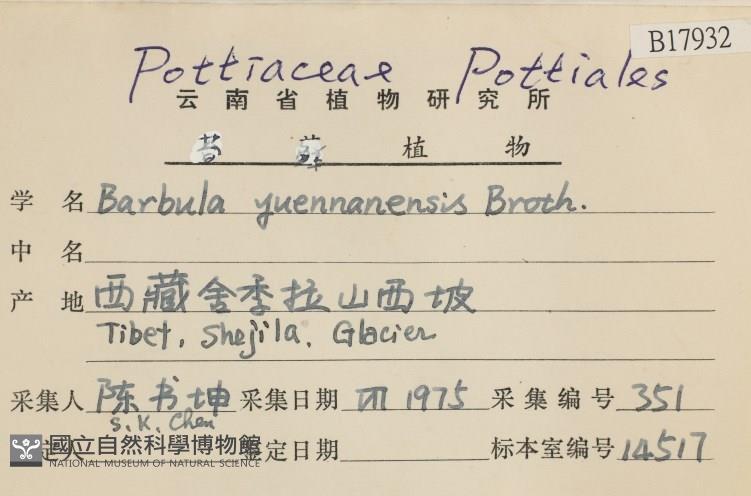 B17932
Pottiaceae Pottiales
云南省植物研究所
苔藓植物
学名 Barbula yuennanensis Broth.
中名
产地 西藏舍季拉山西坡
Tibet, Shejila, Glacier
采集人 陈书坤 采集日期 VII 1975 采集编号 351
S.K. Chen
定人 鉴定日期 标本室编号 14517
國立自然科學博物館
NATIONAL MUSEUM OF NATURAL SCIENCE